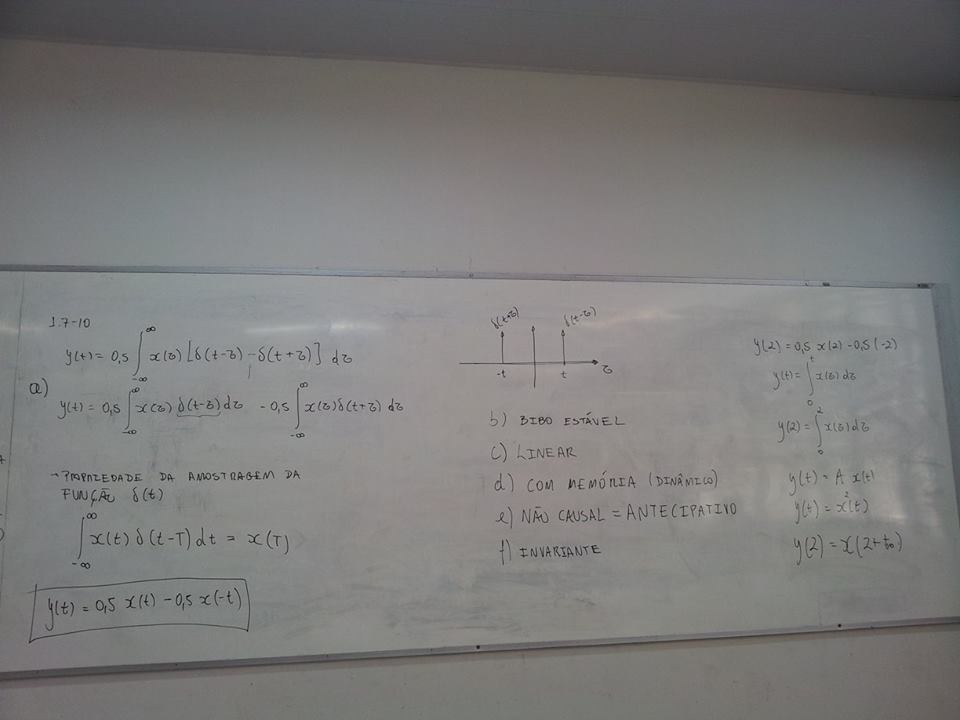 1.7-10
y(t) = 0,5 ∫_{-∞}^{∞} x(τ) [δ(t-τ) - δ(t+τ)] dτ
a)
y(t) = 0,5 ∫_{-∞}^{∞} x(τ) δ(t-τ) dτ - 0,5 ∫_{-∞}^{∞} x(τ) δ(t+τ) dτ
→ PROPRIEDADE DA AMOSTRAGEM DA
FUNÇÃO δ(t)
∫_{-∞}^{∞} x(t) δ(t-T) dt = x(T)
y(t) = 0,5 x(t) - 0,5 x(-t)
δ(t+τ) δ(t-τ)
-t t τ
b) BIBO ESTÁVEL
c) LINEAR
d) COM MEMÓRIA (DINÂMICO)
e) NÃO CAUSAL = ANTECIPATIVO
f) INVARIANTE
y(2) = 0,5 x(2) - 0,5 (-2)
y(t) = ∫_{0}^{t} x(τ) dτ
y(2) = ∫_{0}^{2} x(τ) dτ
y(t) = A x(t)
y(t) = x²(t)
y(2) = x(2+t₀)